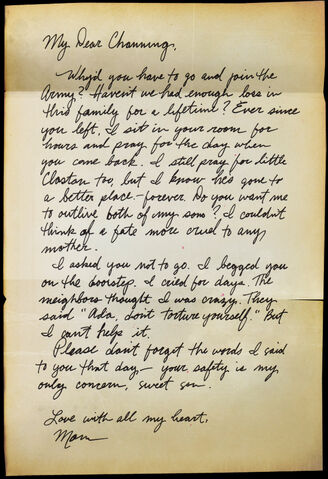 My Dear Channing,
Why'd you have to go and join the
Army? Haven't we had enough loss in
this family for a lifetime? Ever since
you left, I sit in your room for
hours and pray for the day when
you come back. I still pray for little
Claston too, but I know he's gone to
a better place – forever. Do you want me
to outlive both of my sons? I couldn't
think of a fate more cruel to any
mother.
I asked you not to go. I begged you
on the doorstep. I cried for days. The
neighbors thought I was crazy. They
said "Ada, don't torture yourself." But
I can't help it.
Please don't forget the words I said
to you that day, – your safety is my
only concern, sweet son.
Love with all my heart,
Mom